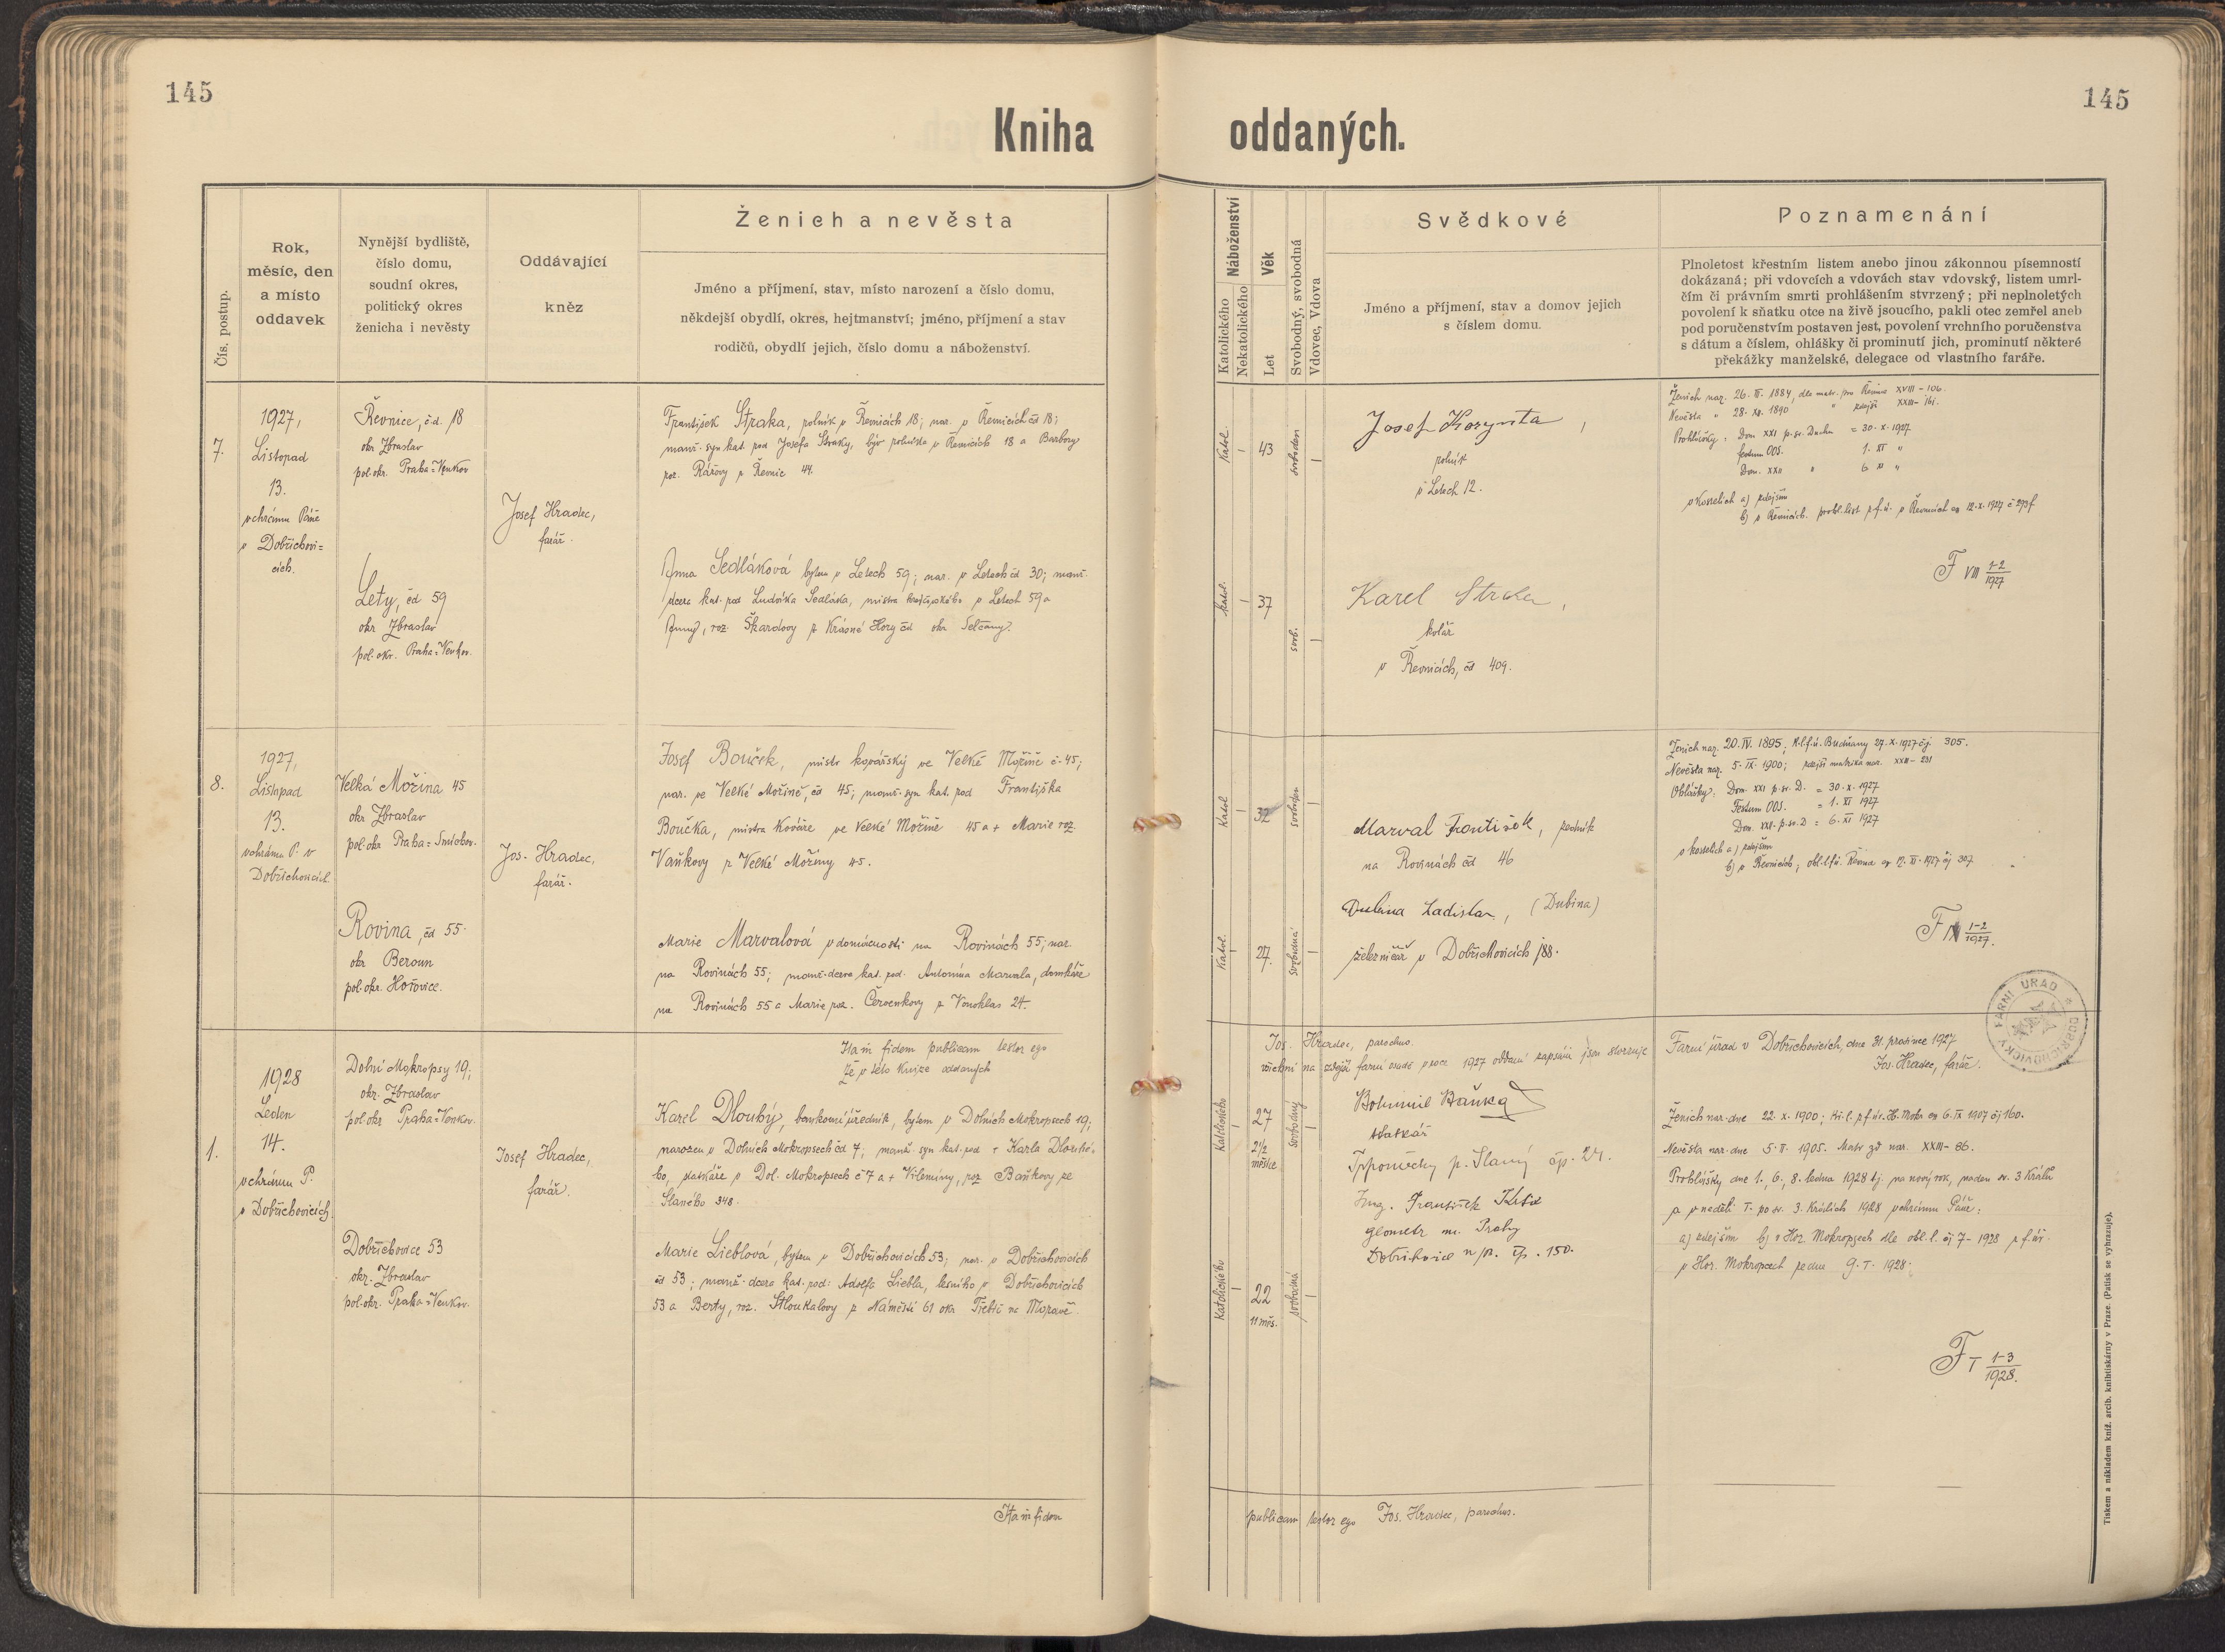 145
145
Kniha oddaných.
Čís. postup.
Rok,
měsíc, den
a místo
oddavek
Nynější bydliště,
číslo domu,
soudní okres,
politický okres
ženicha i nevěsty
Oddávající
kněz
Ženich a nevěsta
Jméno a příjmení, stav, místo narození a číslo domu,
někdejší obydlí, okres, hejtmanství; jméno, příjmení a stav
rodičů, obydlí jejich, číslo domu a náboženství.
Náboženství
Katolického
Nekatolického
Věk
Let
Svobodný, svobodná
Vdovec, Vdova
Svědkové
Jméno a příjmení, stav a domov jejich
s číslem domu.
Poznamenání
Plnoletost křestním listem anebo jinou zákonnou písemností
dokázaná; při vdovcích a vdovách stav vdovský, listem umrl-
čím či právním smrti prohlášením stvrzený; při neplnoletých
povolení k sňatku otce na živě jsoucího, pakli otec zemřel aneb
pod poručenstvím postaven jest, povolení vrchního poručenstva
s dátum a číslem, ohlášky či prominutí jich, prominutí některé
překážky manželské, delegace od vlastního faráře.
7.
1927,
Listopad
13.
v chrámu Páně
v Dobřichovi=
cích.
Řevnice, č.d. 18
okr Zbraslav
pol. okr. Praha=Venkov
Lety, čd 59
okr Zbraslav
pol. okr. Praha=Venkov.
Josef Hradec,
farář.
František Straka, rolník v Řevnicích 18; nar. v Řevnicích čd 18;
manž. syn kat. rod Josefa Straky, býv rolníka v Řevnicích 18 a Barbory
roz. z Řevnic 44.
Anna Sedláková bytem v Letech 59; nar. v Letech čd 30; manž.
dcera kat. rod Ludvíka Sedláka, mistra krejčovského v Letech 59 a
Anny, roz. Škardovy z Krásné Hory čd okr Selčany.
Katol.
43
svoboden
Katol.
37
svob.
Josef Korynta,
rolník
v Letech 12.
Karel Straka,
kolář
v Řevnicích, čd 409.
Ženich nar. 26. 1884, dle matr. Řevnice XVIII - 106.
Nevěsta " 28. XII. 1890 " zdejší XXIII - 161.
Prohlášky: Dom XXI p. sv. Duchu = 30. X. 1927
Festum OOS. 1. XI "
Dom. XXII " 6 XI "
v kostelích a) zdejším
b) v Řevnicích. prohl. list f. ú. v Řevnicích 12. X. 1927 č 293 f
F VIII 1-2/1927
8.
1927,
Listopad
13.
v chrámu P. v
Dobřichovicích.
Velká Mořina 45
okr Zbraslav
pol. okr Praha=Smíchov.
Rovina, čd 55.
okr Beroun
pol. okr. Hořovice.
Jos. Hradec,
farář.
Josef Bouček, mistr kovářský ve Velké Mořině č. 45;
nar. ve Velké Mořině, čd 45; manž. syn kat. rod Františka
Boučka, mistra kováře ve Velké Mořině 45 a + Marie roz
Vaňkovy z Velké Mořiny 45.
Marie Marvalová v domácnosti na Rovinách 55; nar.
na Rovinách 55; manž. dcera kat. rod. Antonína Marvala, domkáře
na Rovinách 55 a Marie roz. Červenkovy z Vonoklas 24.
Katol
32
svoboden
Katol.
27.
svobodná
Marval František, rolník
na Rovinách čd 46
Dubina Ladislav, (Dubina)
železničář v Dobřichovicích 188.
Ženich nar. 20. IV. 1895; k. l. f. ú. Budňany 27. X. 1927 čj 305.
Nevěsta nar. 5. IX. 1900; zdejší matrika nar. XXIII - 231
Ohlášky: Dom. XXI p. sv. D. = 30. X. 1927
Festum OOS. = 1. XI 1927
Dom. XXII. p. sv. D = 6. XI 1927
v kostelích a) zdejším
b) v Řevnicích; obl. l. f. ú. Řevnice 12. XI. 1927 čj 307
F IX 1-2/1927.
FARNÍ ÚŘAD DOBŘICHOVICKÝ
Ita in fidem publicam testor ego
Jos. Hradec, parochus.
že v této knize oddaných
všichni na zdejší farní osadě roce 1927 oddaní zapsáni jsou stvrzuje
Farní úřad v Dobřichovicích, dne 31. prosince 1927
Jos. Hradec, farář.
1.
1928
Leden
14.
v chrámu P.
v Dobřichovicích.
Dolní Mokropsy 19;
okr. Zbraslav
pol. okr Praha=Venkov.
Dobřichovice 53
okr. Zbraslav
pol. okr. Praha=Venkov.
Josef Hradec,
farář.
Karel Dlouhý, bankovní úředník, bytem v Dolních Mokropsech 19;
narozen v Dolních Mokropsech čd 7, manž. syn kat. rod + Karla Dlouhé=
ho, statkáře v Dol. Mokropsech č 7 a + Vilemíny, roz Baňkovy ze
Slaného 348.
Marie Lieblová, bytem v Dobřichovicích 53; nar. v Dobřichovicích
čd 53; manž. dcera kat. rod: Adolfa Liebla, lesního v Dobřichovicích
53 a Berty, roz. Stloukalovy z Náměště 61 okr Třebíč na Moravě.
Katolického
27
2 1/2
měsíce
svobodný
Katolického
22
11 měs.
svobodná
Bohumil Baňka
statkář
p. Slaný čp. 24.
Ing. František
geometr m. Prahy
Dobřichovice čp. 150.
Ženich nar. dne 22. X. 1900; kř. l. f. ú. H. Mokr 6. IX 1907 čj 160.
Nevěsta nar. dne 5. II. 1905. Matr zd nar. XXIII - 86.
Prohlášky dne 1., 6., 8. ledna 1928 tj. na nový rok, na den sv. 3 Králů
a v neděli I. po sv. 3. Králích 1928 v chrámu Páně:
a) zdejším b) v Hor. Mokropsech dle obl. l. čj 7 - 1928 f. úř.
v Hor. Mokropsech ze dne 9. I. 1928.
F I 1-3/1928.
Ita in fidem
publicam testor ego Jos. Hradec, parochus.
Tiskem a nákladem kníž. arcib. knihtiskárny v Praze. (Patisk se vyhrazuje).